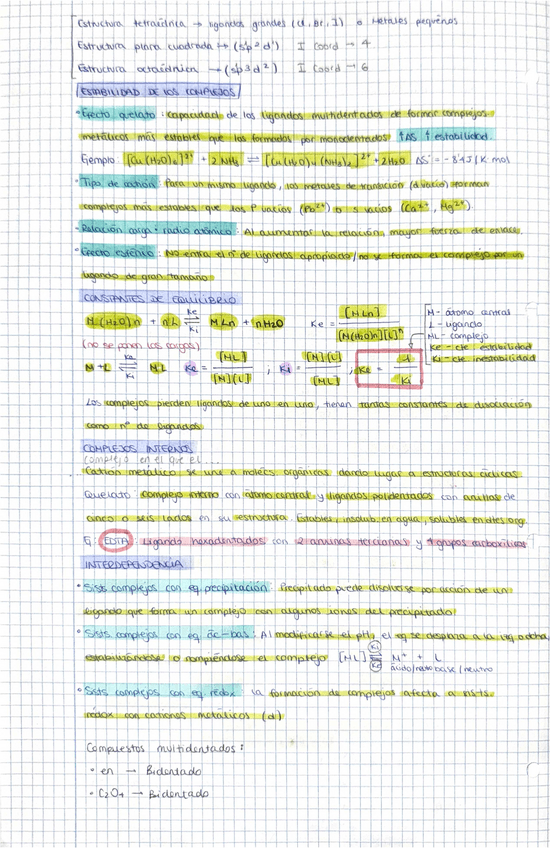 Estructura tetraédrica → ligandos grandes (Cl, Br, I) o Metales pequeños
Estructura plana cuadrada → (s¹p²d¹) I Coord → 4
Estructura octaédrica → (sp³d²) I Coord → 6
ESTABILIDAD DE LOS COMPLEJOS
• Efecto quelato: capacidad de los ligandos multidentados de formar complejos
metálicos más estables que los formados por monodentados ↑ΔS ↑ estabilidad.
Ejemplo: [Cu(H₂O)₆]²⁺ + 2NH₃ ⇌ [Cu(H₂O)₄(NH₃)₂]²⁺ + 2H₂O ΔS° = -8'4J/K·mol
• Tipo de catión: Para un mismo ligando, los metales de transición (d vacío) forman
complejos más estables que los P vacíos (Pb²⁺) o s vacíos (Ca²⁺, Mg²⁺).
• Relación carga: radio atómico: Al aumentar la relación, mayor fuerza de enlace.
• Efecto estérico: No entra el nº de ligandos apropiado/no se forma el complejo por un
ligando de gran tamaño
CONSTANTES DE EQUILIBRIO
M(H₂O)n + nL ⇌ MLn + nH₂O Ke Ki Ke = [MLn] / [M(H₂O)n][L]ⁿ
M - átomo central
L - ligando
ML - complejo
Ke - cte estabilidad
Ki - cte inestabilidad
(no se ponen las cargas)
M + L ⇌ ML Ke Ki Ke = [ML] / [M][L] ; Ki = [M][L] / [ML] ; Ke = 1 / Ki
Los complejos pierden ligandos de uno en uno, tienen tantas constantes de disociación
como nº de ligandos
COMPLEJOS INTERNOS
complejo en el que el...
Catión metálico, se une a moléc orgánicas dando lugar a estructuras cíclicas
Quelato: complejo interno con átomo central y ligandos polidentados con anillos de
cinco a seis lados en su estructura. Estables, insolub. en agua, solubles en dtes org.
Ej: EDTA: Ligando hexadentados con 2 aminas terciarias y 4 grupos carboxílicos
INTERDEPENDENCIA
• Sists complejos con eq precipitación: Precipitado puede disolverse por acción de un
ligando que forma un complejo con algunos iones del precipitado.
• Sists complejos con eq ác-bas: Al modificarse el pH, el eq se desplaza a la izq o dcha,
estabilizándose o rompiéndose el complejo [ML] ⇌ M⁺ + L Ki Ke
ácido/neutro base/neutro
• Sists complejos con eq redox: la formación de complejos afecta a sists.
rédox con cationes metálicos (d)
Compuestos multidentados:
• en → Bidentado
• C₂O₄ → Bidentado